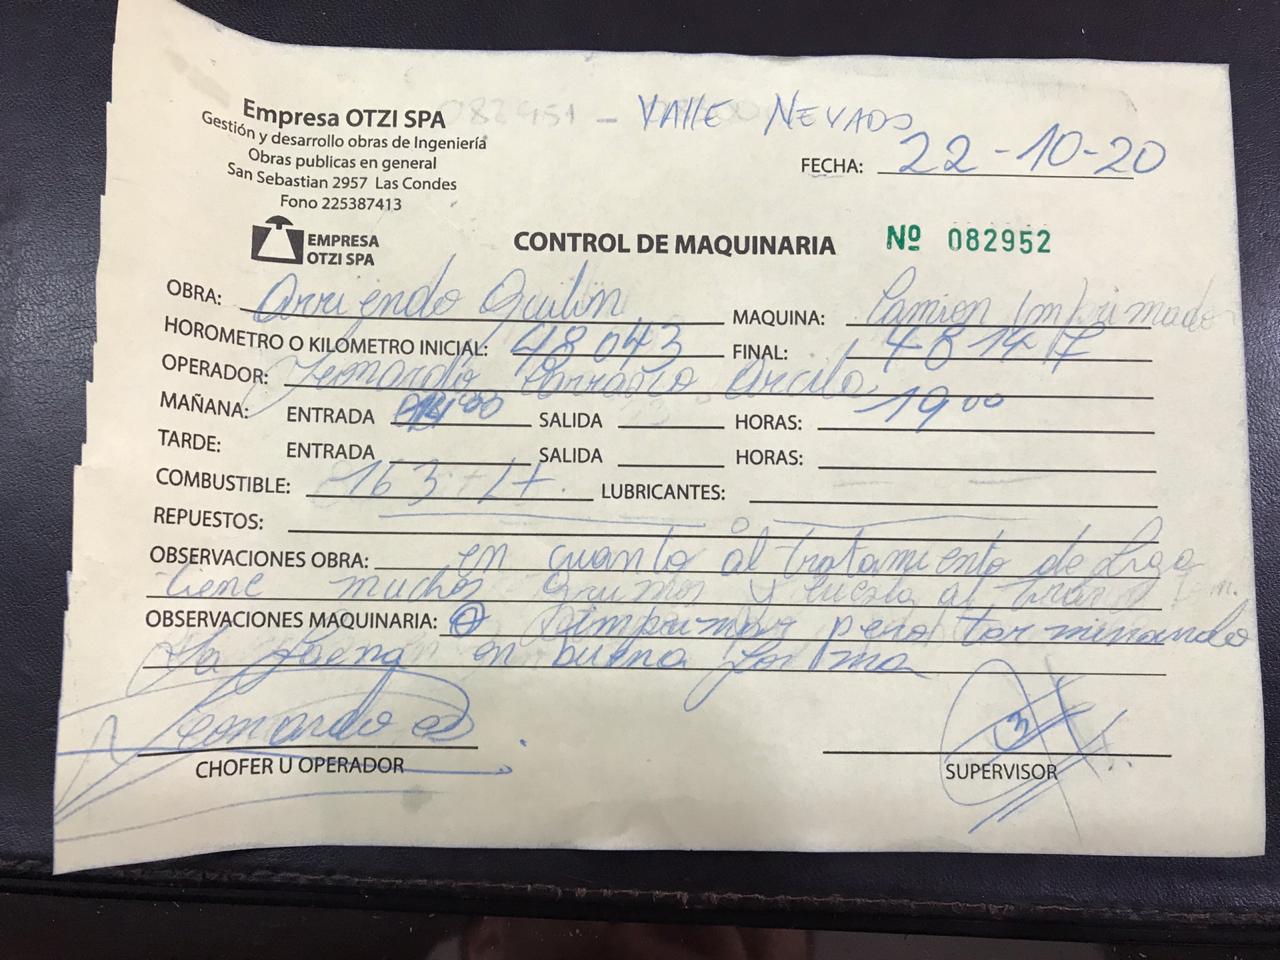 Empresa OTZI SPA
Gestión y desarrollo obras de Ingeniería
Obras publicas en general
San Sebastian 2957 Las Condes
Fono 225387413
082451 - VAllE NEVADO
FECHA: 22-10-20
EMPRESA
OTZI SPA
CONTROL DE MAQUINARIA Nº 082952
OBRA: Arriendo Quilin MAQUINA: Camion Imprimado
HOROMETRO O KILÓMETRO INICIAL: 48043 FINAL: 48147
OPERADOR: Leonardo Arcila
MAÑANA: ENTRADA SALIDA HORAS: 19 00
TARDE: ENTRADA SALIDA HORAS:
COMBUSTIBLE: 163 Lt. LUBRICANTES:
REPUESTOS:
OBSERVACIONES OBRA: en cuanto al tratamiento de Liga
tiene muchos grumos y cuesta al
OBSERVACIONES MAQUINARIA: imprimar pero terminando
La faena en buena forma
Leonardo
CHOFER U OPERADOR
SUPERVISOR